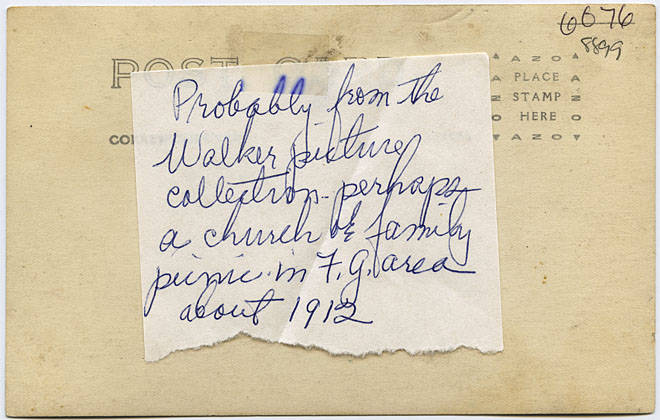 6676
8899
POST
AZO
PLACE
STAMP
HERE
AZO
CORRE
Probably from the
Walker picture
collection - perhaps
a church or family
picnic in F.G. area
about 1912